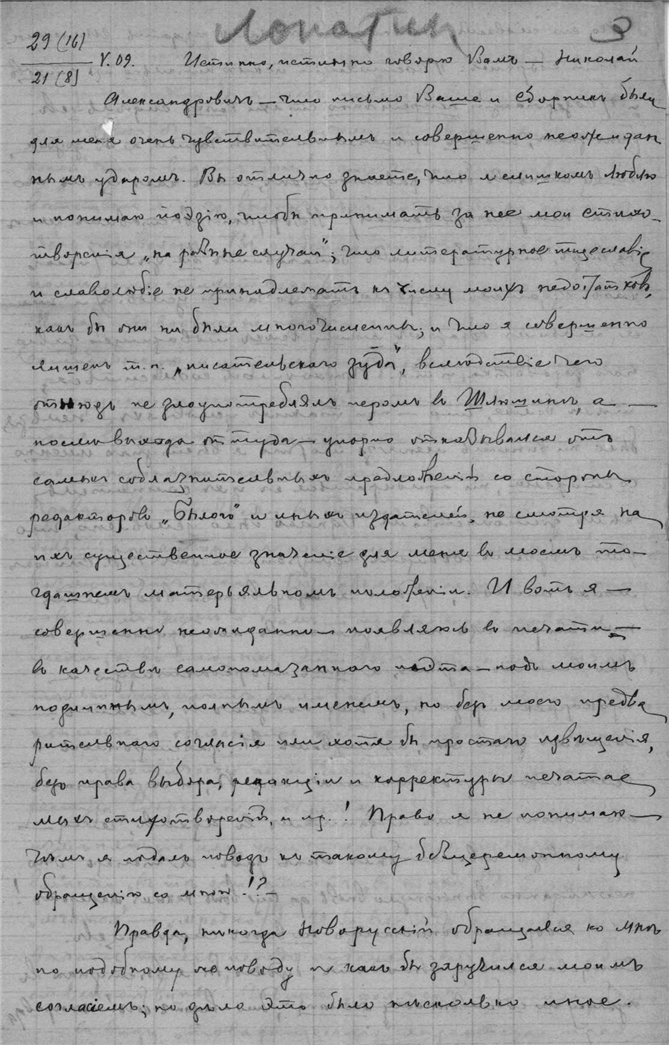 Лопатин 3
29 (16)
21 (8) V. 09. Истинно, истинно говорю Вамъ — Николай
Александровичъ — что письмо Ваше и Сборникъ были
для меня очень чувствительнымъ и совершенно неожидан-
нымъ ударомъ. Вы отлично знаете, что я слишкомъ люблю
и понимаю поэзію, чтобы принимать за нее мои стихо-
творенія „на разные случаи"; что литературное тщеславіе
и славолюбіе не принадлежатъ къ числу моихъ недостатковъ,
какъ бы они ни были многочисленны; и что я совершенно
лишенъ т. н. „писательскаго зуда", вслѣдствіе чего
отнюдь не злоупотреблялъ перомъ въ Шлюшинѣ, а —
послѣ выхода оттуда — упорно отказывался отъ
самыхъ соблазнительныхъ предложеній со стороны
редакторовъ „Былого" и иныхъ издателей, не смотря на
ихъ существенное значеніе для меня въ моемъ то-
гдашнемъ матерьяльномъ положеніи. И вотъ я —
совершенно неожиданно — появляюсь въ печати —
въ качествѣ самопомазаннаго поэта — подъ моимъ
подлиннымъ, полнымъ именемъ, но безъ моего предва-
рительнаго согласія или хотя бы простого извѣщенія,
безъ права выбора, редакціи и корректуры печатае-
мыхъ стихотвореній, и пр.! Право я не понимаю —
чѣмъ я подалъ поводъ къ такому безцеремонному
обращенію со мною!?
Правда, никогда Новорусскій обращался ко мнѣ
по подобному же поводу и какъ бы заручился моимъ
согласіемъ; но дѣло это было нѣсколько иное.